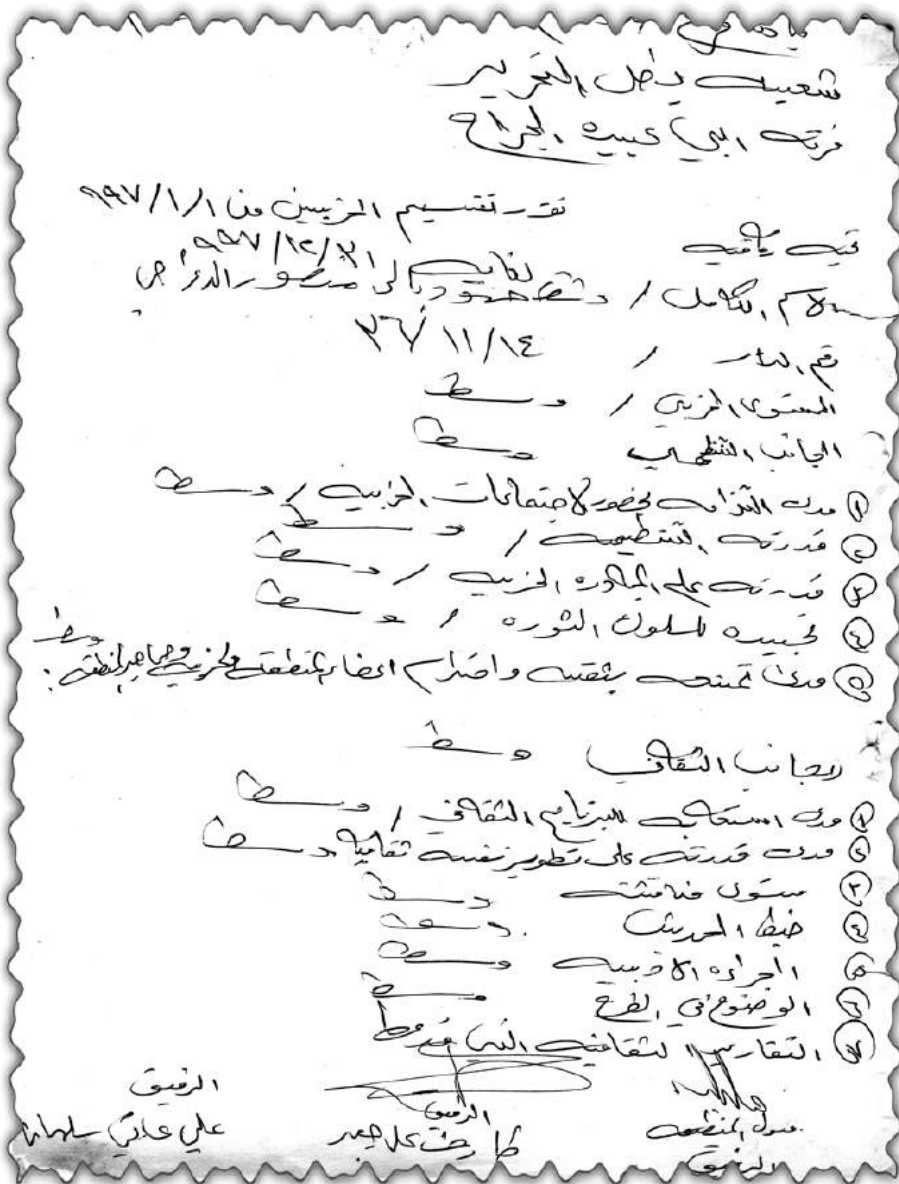 شعبة بطل التحرير
فرقة ابي عبيده الجراح
تقرير تقسيم الحزبيين من ١/١/٩٩٧
لغاية ٣١/١٢/٩٩٧
تحيه رفاقيه
الاسم الكامل /
رقم الدار / ٣٦/١١/١٤
المستوى الحزبي / وسط
الجانب التنظيمي وسط
١ مدى التزامه بحضور الاجتماعات الحزبيه / وسط
٢ قدرته التنظيميه / وسط
٣ قدرته على المبادره الحزبيه / وسط
٤ تجسيده للسلوك الثوره / وسط
٥ مدى تمتعه بثقته واحترام اعضاء المنظمة الحزبيه وجماهير المنطقه : وسط
الجانب الثقافي وسط
١ مدى استعابه للبرنامج الثقافي / وسط
٢ مدى قدرته على تطوير نفسه ثقافيا وسط
٣ مستوى مناقشته وسط
٤ ضبط الحديث وسط
٥ الجراءه الادبيه وسط
٦ الوضوح في الطرح وسط
٧ التقارير الثقافيه التي
الرفيق الرفيق مسؤول المنظمه
علي سلمان الرفيق